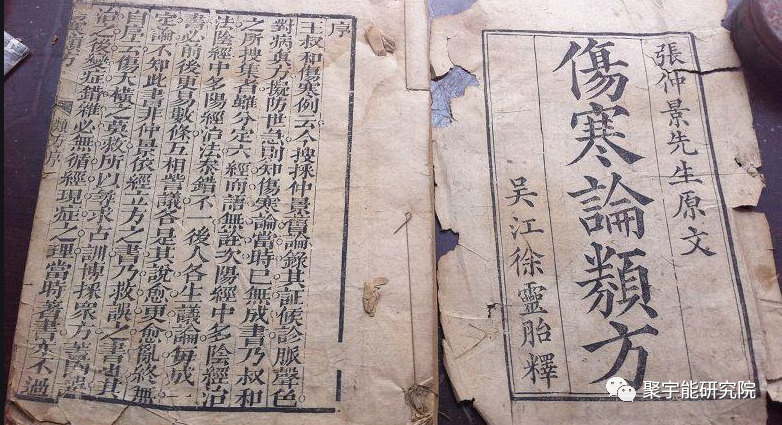 張仲景先生原文
傷寒論類方
吳江徐靈胎釋
序
王叔和傷寒例云今搜採仲景舊論錄其証候診脈聲色
對病真方擬防世急則知傷寒論當時已無成書乃叔和
之所搜集者雖分定六經而語無詮次陽經中多陰經治
法陰經中多陽經治法參錯不一後人各生議論每成一
書必前後更易數條互相訾議各是其說愈更愈亂終無
定論不知此書非仲景依經立方之書乃救誤之書其
自序云傷夭橫之莫救所以尋求古訓博採眾方蓋因誤
治之後變症錯雜必無循經現症之理當時著書亦不過
類方序
聚宇能研究院